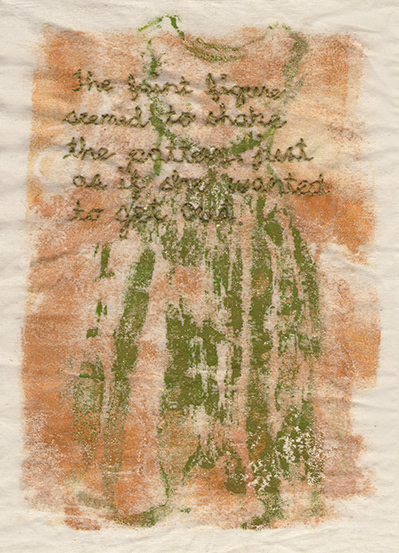 the faint figure
seemed to shake
the pattern, just
as if she wanted
to get out